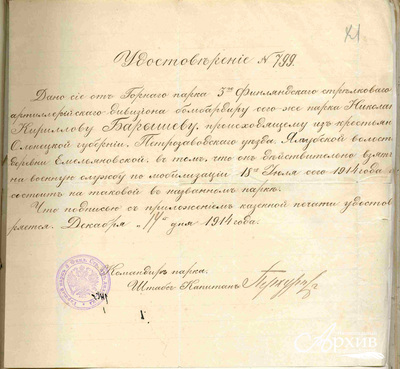 21.
Удостовѣреніе № 799.
Дано сіе отъ Горнаго парка 3го Финляндскаго стрѣлковаго
артиллерійскаго дивизіона бомбардиру сего же парка Николаю
Кириллову Барышеву, происходящему изъ крестьянъ
Олонецкой губерніи, Петрозаводскаго уѣзда, Ялгубской волости
деревни Емельяновской, въ томъ, что онъ дѣйствительно взятъ
на военную службу по мобилизаціи 18го Іюля сего 1914 года и
состоитъ на таковой въ названномъ паркѣ.
Что подписью съ приложеніемъ казенной печати удостовѣ
ряется. Декабря „14" дня 1914 года.
Командиръ парка.
Штабсъ-Капитанъ
Архив